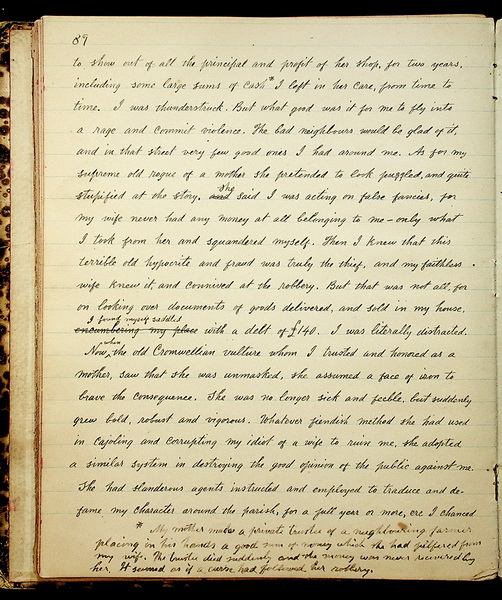 89
to show out of all the principal and profit of her shop, for two years,
including some large sums of cash* I left in her care, from time to
time. I was thunderstruck. But what good was it for me to fly into
a rage and commit violence. The bad neighbours would be glad of it,
and in that street very few good ones I had around me. As for my
supreme old rogue of a mother she pretended to look puzzled, and quite
stupified at the story. and She said I was acting on false fancies, for
my wife never had any money at all belonging to me – only what
I took from her and squandered myself. Then I knew that this
terrible old hypocrite and fraud was truly the thief, and my faithless
wife knew it, and connived at the robbery. But that was not all, for
on looking over documents of goods delivered, and sold in my house,
I found myself saddled
encumbering my place with a debt of £140. I was literally distracted.
Now, when the old Cromwellian vulture whom I trusted and honored as a
mother, saw that she was unmasked, she assumed a face of iron to
brave the consequence. She was no longer sick and feeble, but suddenly
grew bold, robust and vigorous. Whatever fiendish method she had used
in cajoling and corrupting my idiot of a wife to ruin me, she adopted
a similar system in destroying the good opinion of the public against me.
She had slanderous agents instructed and employed to traduce and de-
fame my character around the parish, for a full year or more, ere I chanced
* My mother made a private trustee of a neighbouring farmer
placing in his hands a good sum of money which she had pilfered from
my wife. The trustee died suddenly and the money was never recovered by
her. It seemed as if a curse had followed her robbery.